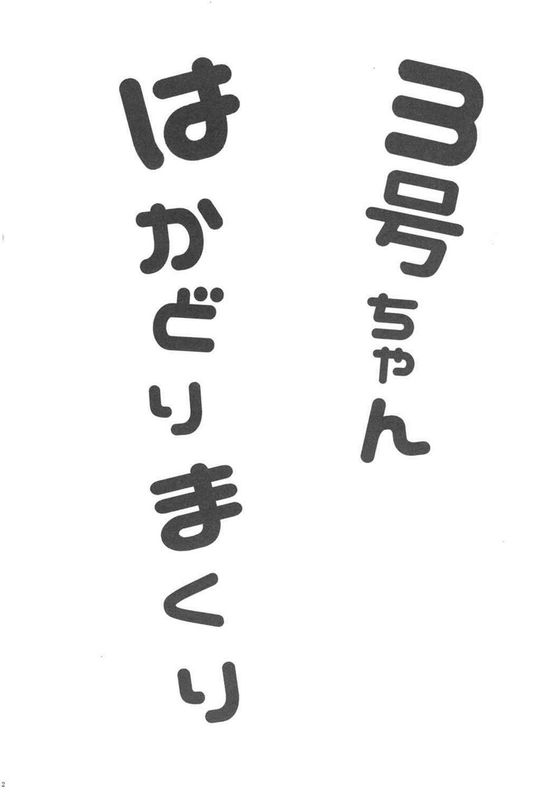 3号ちゃん
はかどりまくり
2